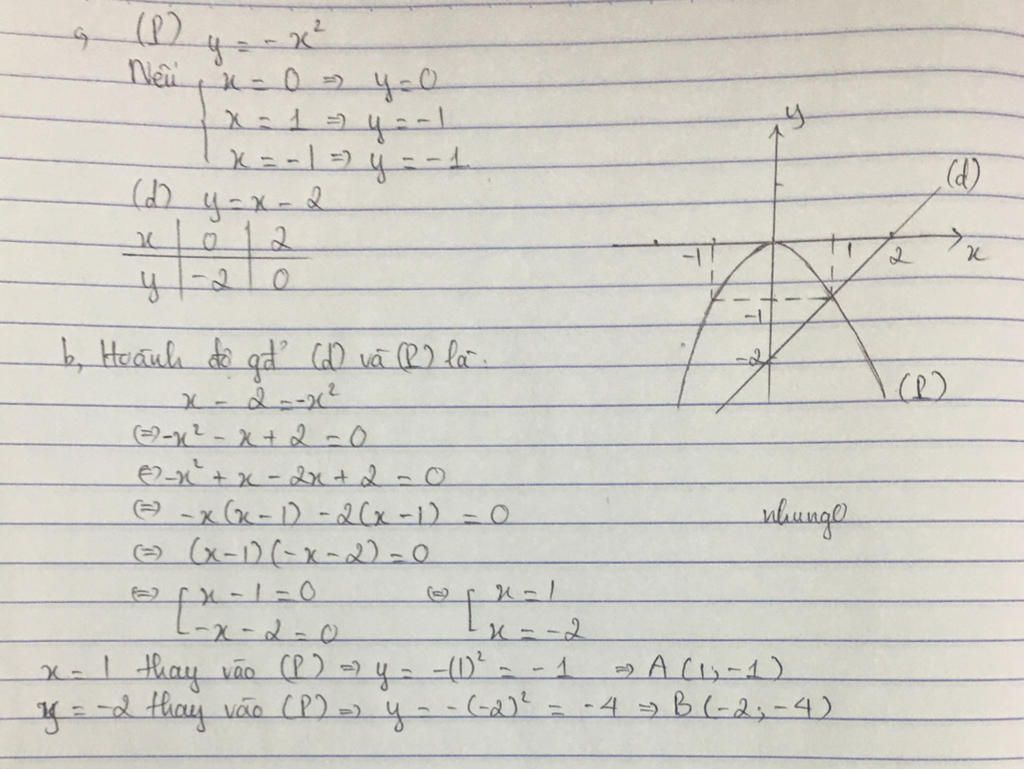 a, (P) y = -x²
Nếu { x = 0 => y = 0
x = 1 => y = -1
x = -1 => y = -1
(d) y = x - 2
x | 0 | 2
y | -2 | 0
y
(d)
-1 1 2 x
-1
-2
(P)
b, Hoành độ gđ (d) và (P) là:
x - 2 = -x²
<=> -x² - x + 2 = 0
<=> -x² + x - 2x + 2 = 0
<=> -x(x-1) - 2(x-1) = 0
nhung0
<=> (x-1)(-x-2) = 0
<=> [ x - 1 = 0 <=> [ x = 1
-x - 2 = 0 x = -2
x = 1 thay vào (P) => y = -(1)² = -1 => A(1; -1)
x = -2 thay vào (P) => y = -(-2)² = -4 => B(-2; -4)